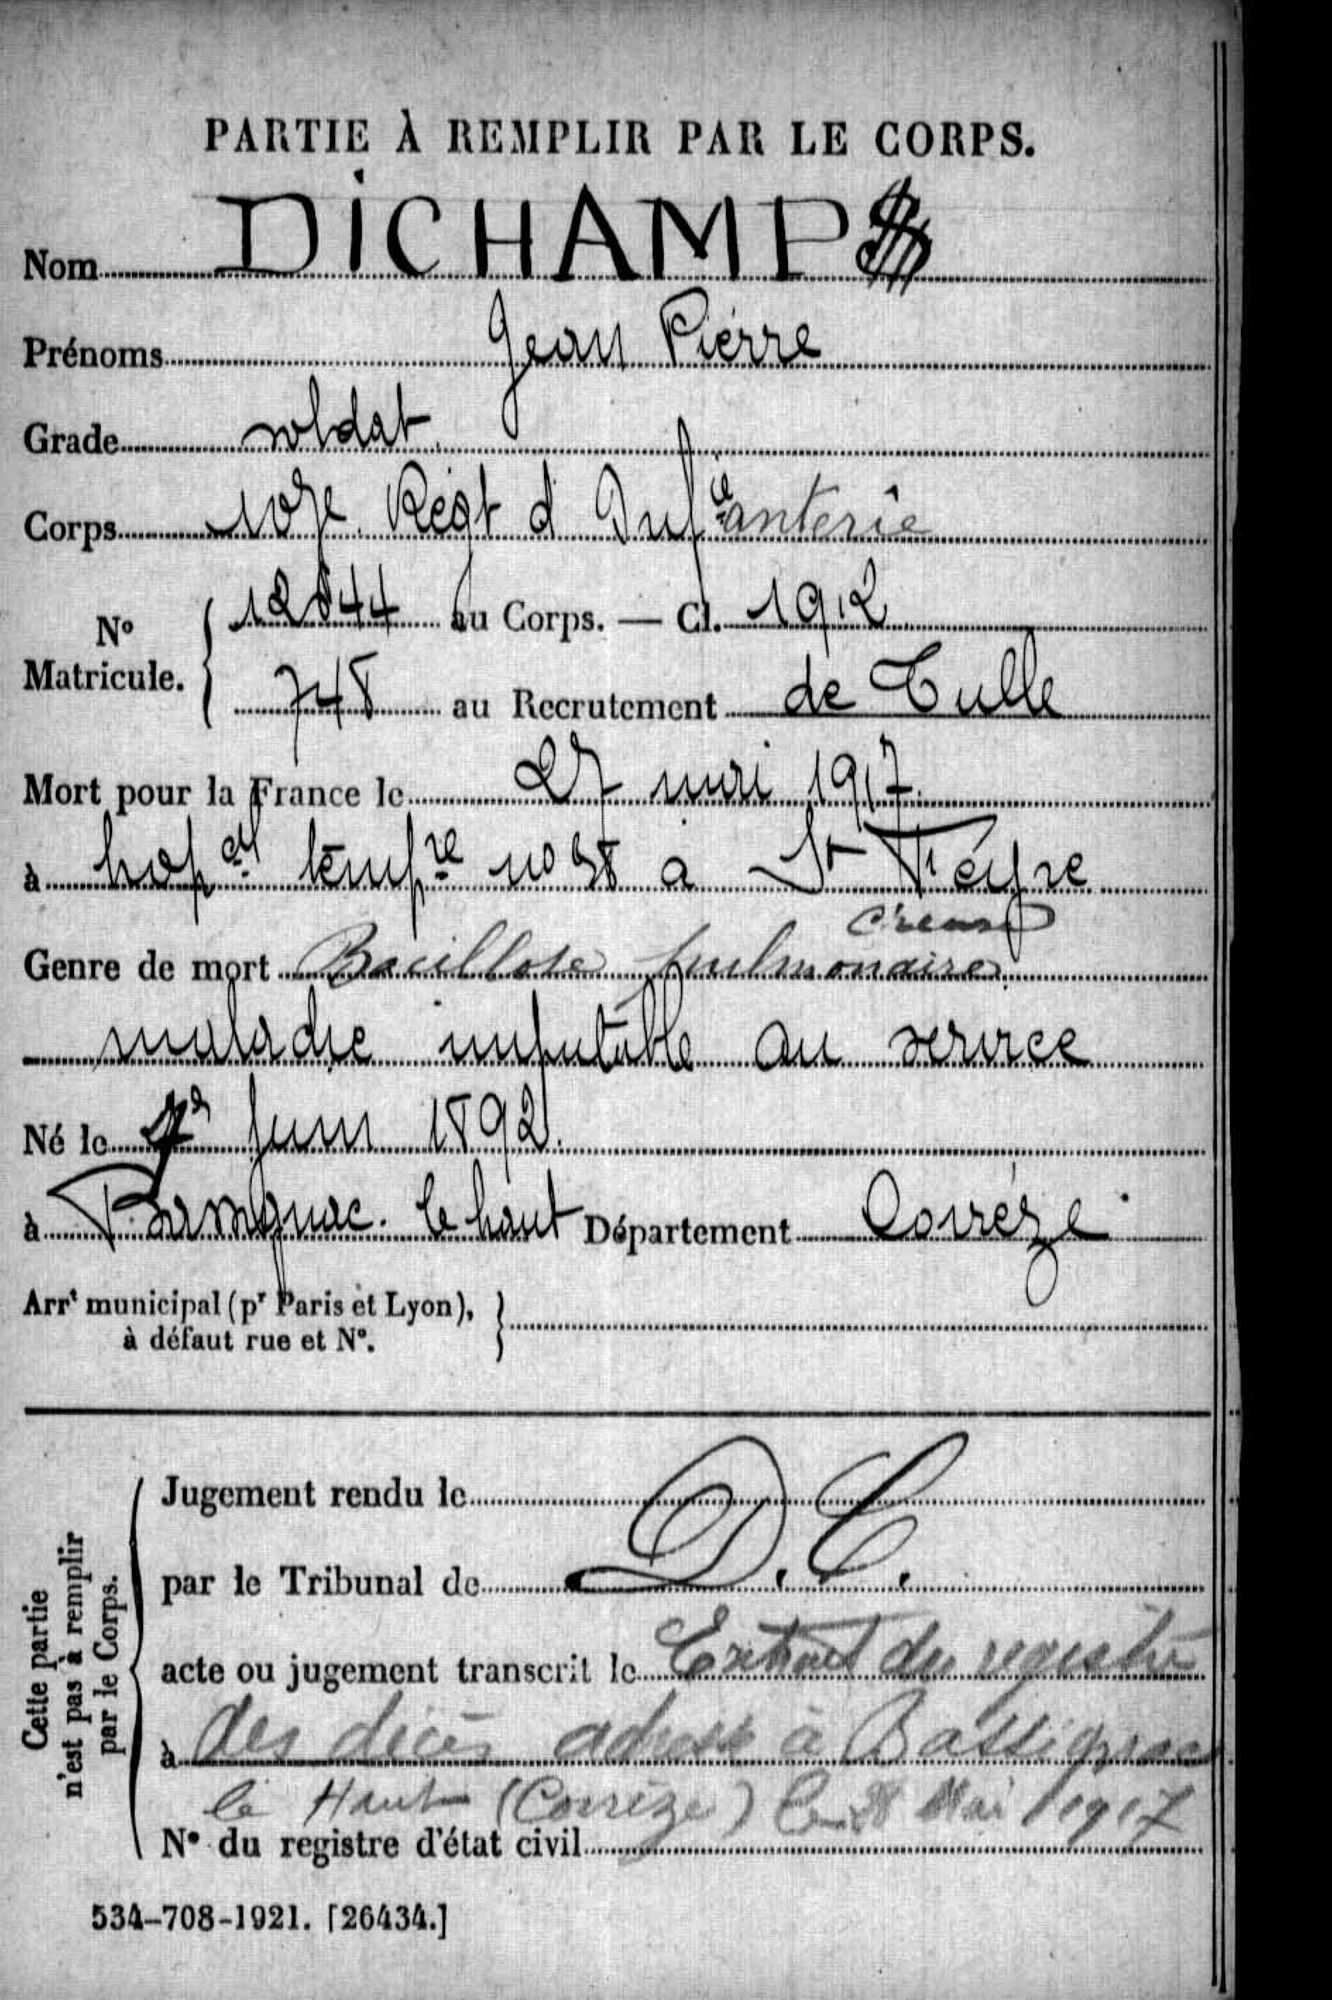 PARTIE À REMPLIR PAR LE CORPS.
Nom DICHAMP
Prénoms Jean Pierre
Grade soldat
Corps 107e Régt d Infie anterie
No Matricule. 12844 au Corps. — Cl. 1912
748 au Recrutement de Tulle
Mort pour la France le 27 mai 1917
à hopal tempre no 38 à St Feyre
Creuse
Genre de mort Bacillose pulmonaire
maladie imputable au service
Né le Juin 1892
à Bassignac le haut Département Corrèze
Arrt municipal (pr Paris et Lyon), à défaut rue et No.
Cette partie n'est pas à remplir par le Corps.
Jugement rendu le
par le Tribunal de D.C.
acte ou jugement transcrit le Extrait du registre
à des décès adressé à Bassignac
le Haut (Corrèze) le 28 Mai 1917
No du registre d'état civil
534-708-1921. [26434.]